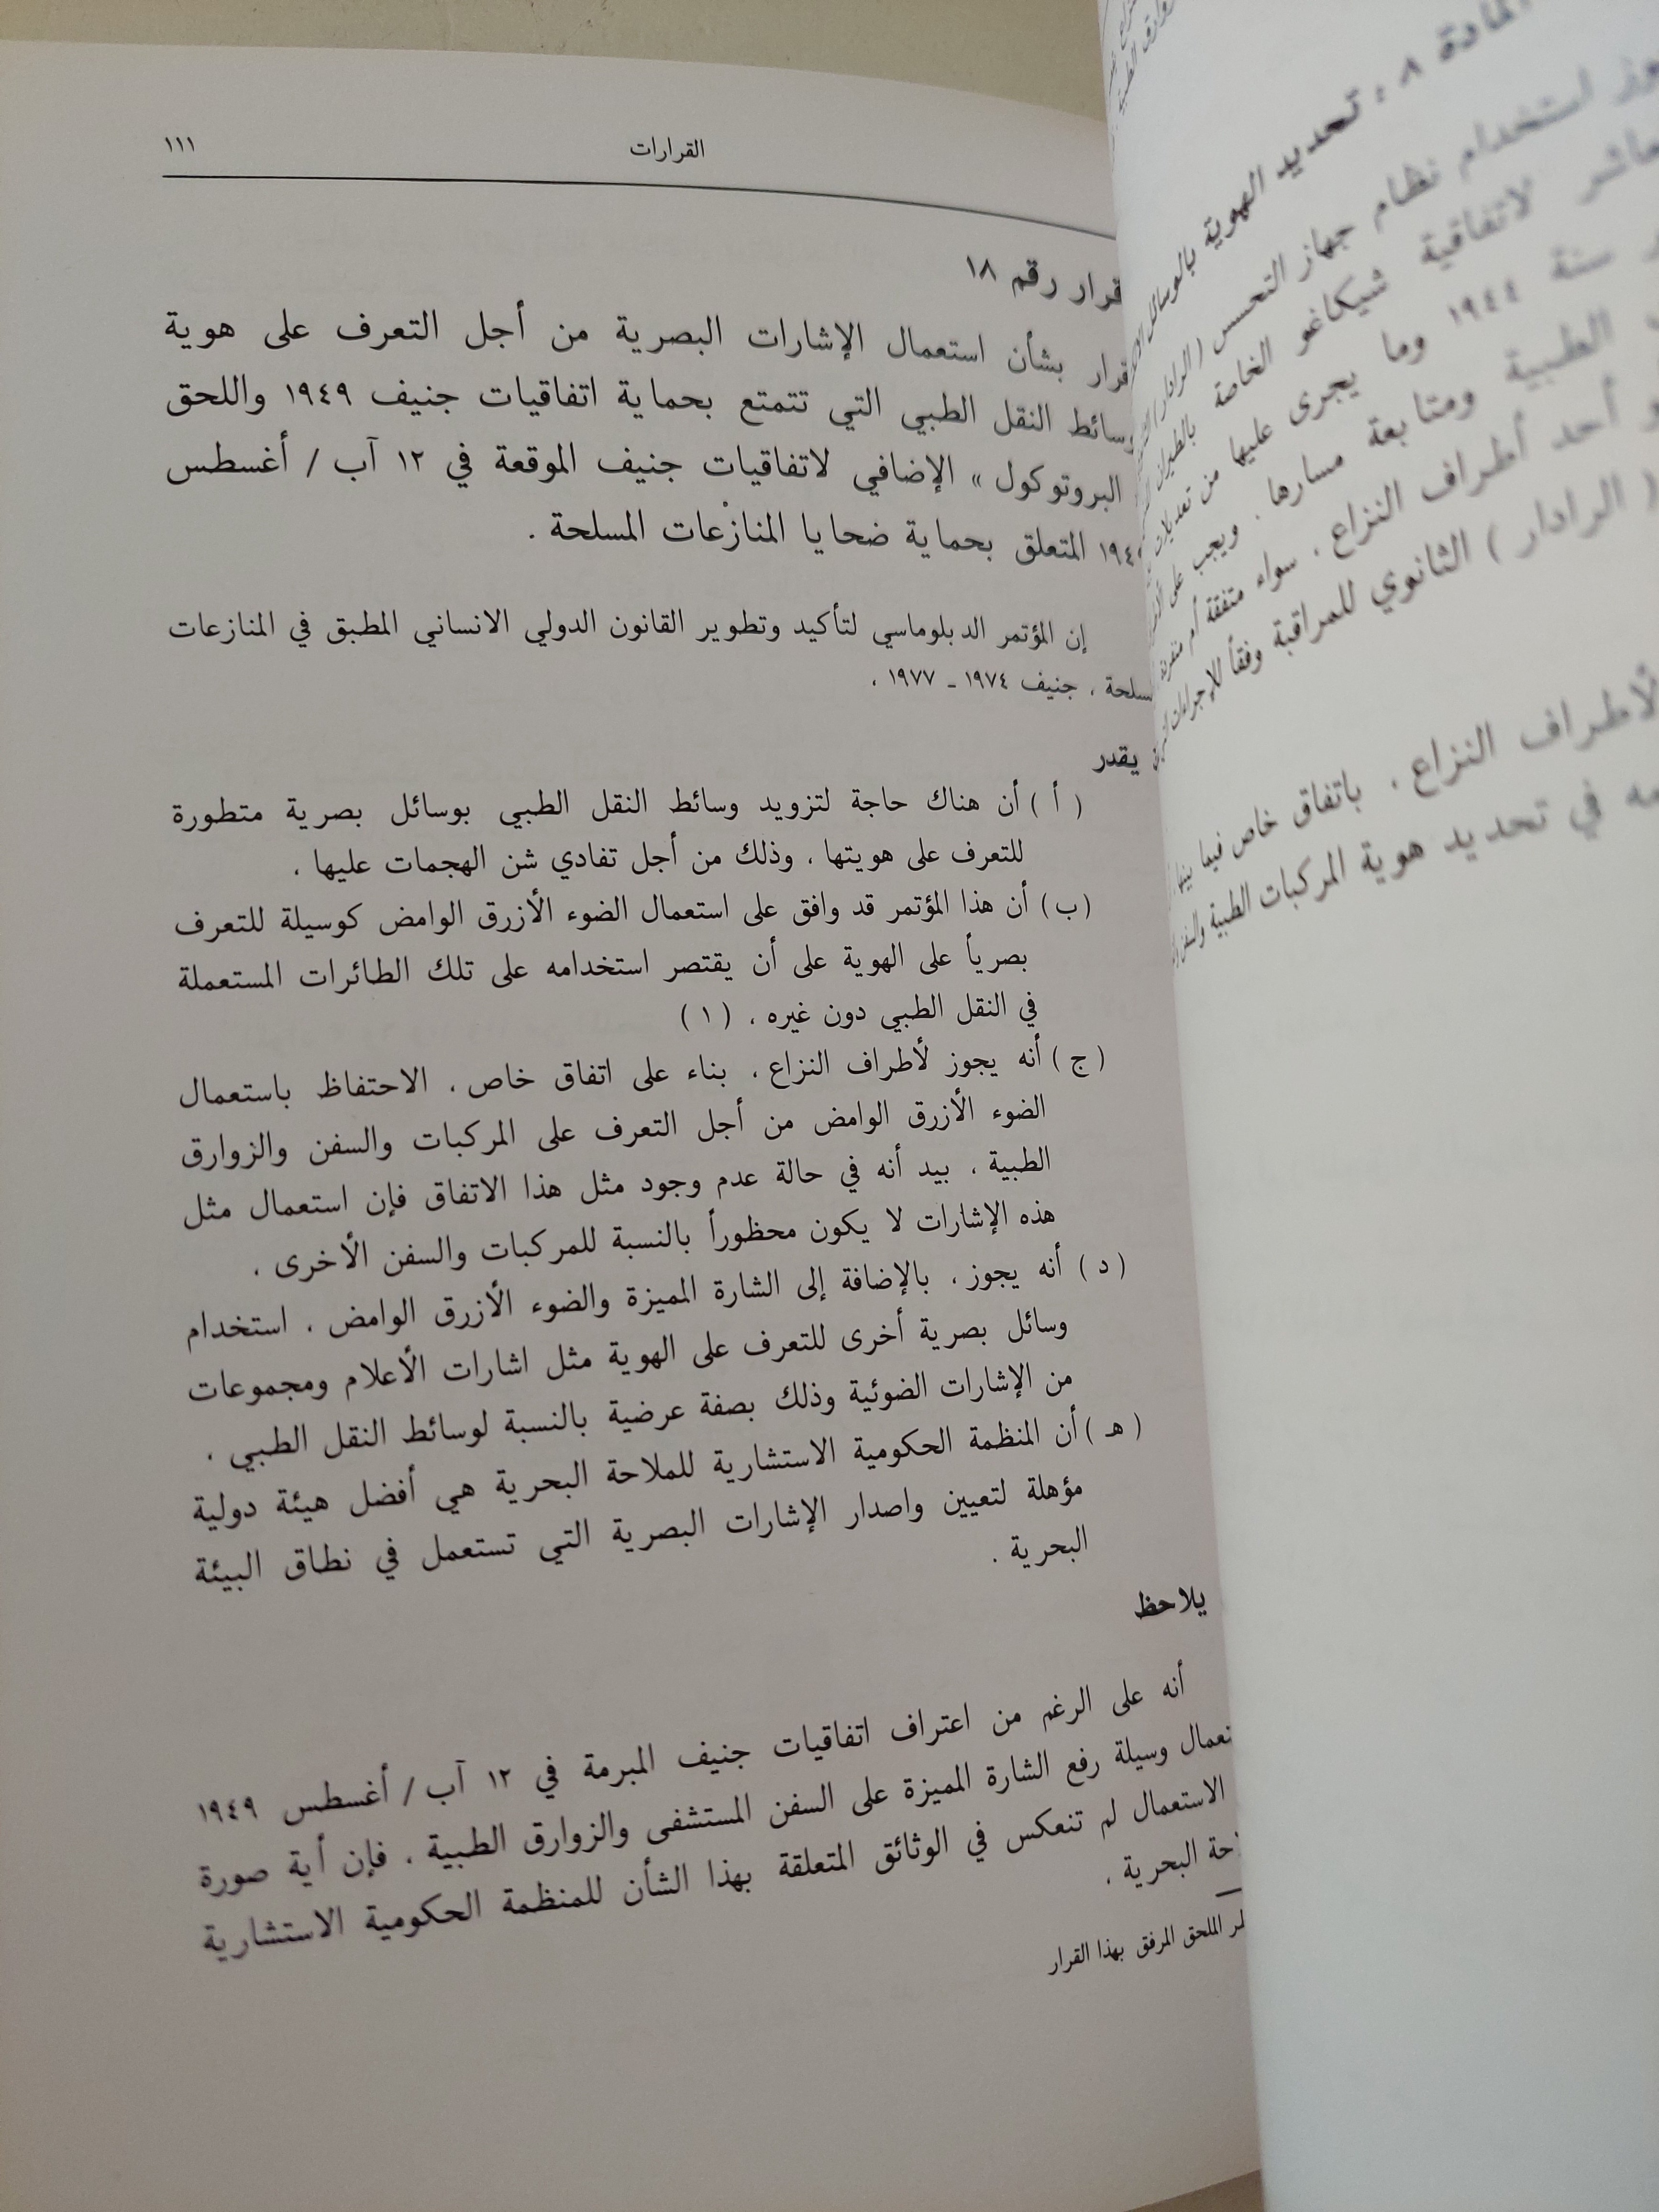 القرارات
١١١
قرار رقم ١٨
قرار بشأن استعمال الإشارات البصرية من أجل التعرف على هوية
وسائط النقل الطبي التي تتمتع بحماية اتفاقيات جنيف ١٩٤٩ واللحق
البروتوكول » الإضافي لاتفاقيات جنيف الموقعة في ١٢ آب / أغسطس
المتعلق بحماية ضحايا المنازعات المسلحة .
إن المؤتمر الدبلوماسي لتأكيد وتطوير القانون الدولي الانساني المطبق في المنازعات
سلحة ، جنيف ١٩٧٤ ـ ١٩٧٧ ،
يقدر
( أ ) أن هناك حاجة لتزويد وسائط النقل الطبي بوسائل بصرية متطورة
للتعرف على هويتها ، وذلك من أجل تفادي شن الهجمات عليها ،
(ب) أن هذا المؤتمر قد وافق على استعمال الضوء الأزرق الوامض كوسيلة للتعرف
بصرياً على الهوية على أن يقتصر استخدامه على تلك الطائرات المستعملة
في النقل الطبي دون غيره ، ( ١ )
( ج ) أنه يجوز لأطراف النزاع ، بناء على اتفاق خاص ، الاحتفاظ باستعمال
الضوء الأزرق الوامض من أجل التعرف على المركبات والسفن والزوارق
الطبية ، بيد أنه في حالة عدم وجود مثل هذا الاتفاق فإن استعمال مثل
هذه الإشارات لا يكون محظوراً بالنسبة للمركبات والسفن الأخرى ،
( د ) أنه يجوز ، بالإضافة إلى الشارة المميزة والضوء الأزرق الوامض ، استخدام
وسائل بصرية أخرى للتعرف على الهوية مثل اشارات الأعلام ومجموعات
من الإشارات الضوئية وذلك بصفة عرضية بالنسبة لوسائط النقل الطبي ،
( هـ ) أن المنظمة الحكومية الاستشارية للملاحة البحرية هي أفضل هيئة دولية
مؤهلة لتعيين واصدار الإشارات البصرية التي تستعمل في نطاق البيئة
البحرية .
يلاحظ
أنه على الرغم من اعتراف اتفاقيات جنيف المبرمة في ١٢ آب / أغسطس ١٩٤٩
وسيلة رفع الشارة المميزة على السفن المستشفى والزوارق الطبية ، فإن أية صورة
الاستعمال لم تنعكس في الوثائق المتعلقة بهذا الشأن للمنظمة الحكومية الاستشارية
البحرية ،
الملحق المرفق بهذا القرار
المادة ٨ : تحديد الهوية
استخدام نظام جهاز التحسس ( الرادار )
لاتفاقية شيكاغو الخاصة بالطيران
سنة ١٩٤٤ وما يجرى عليها من تعديلات
الطبية ومتابعة مسارها . ويجب على
أحد أطراف النزاع ، سواء متفقة أم منفردة
( الرادار ) الثانوي للمراقبة وفقاً للإجراءات
لأطراف النزاع ، باتفاق خاص فيما بينها
في تحديد هوية المركبات الطبية والسفن